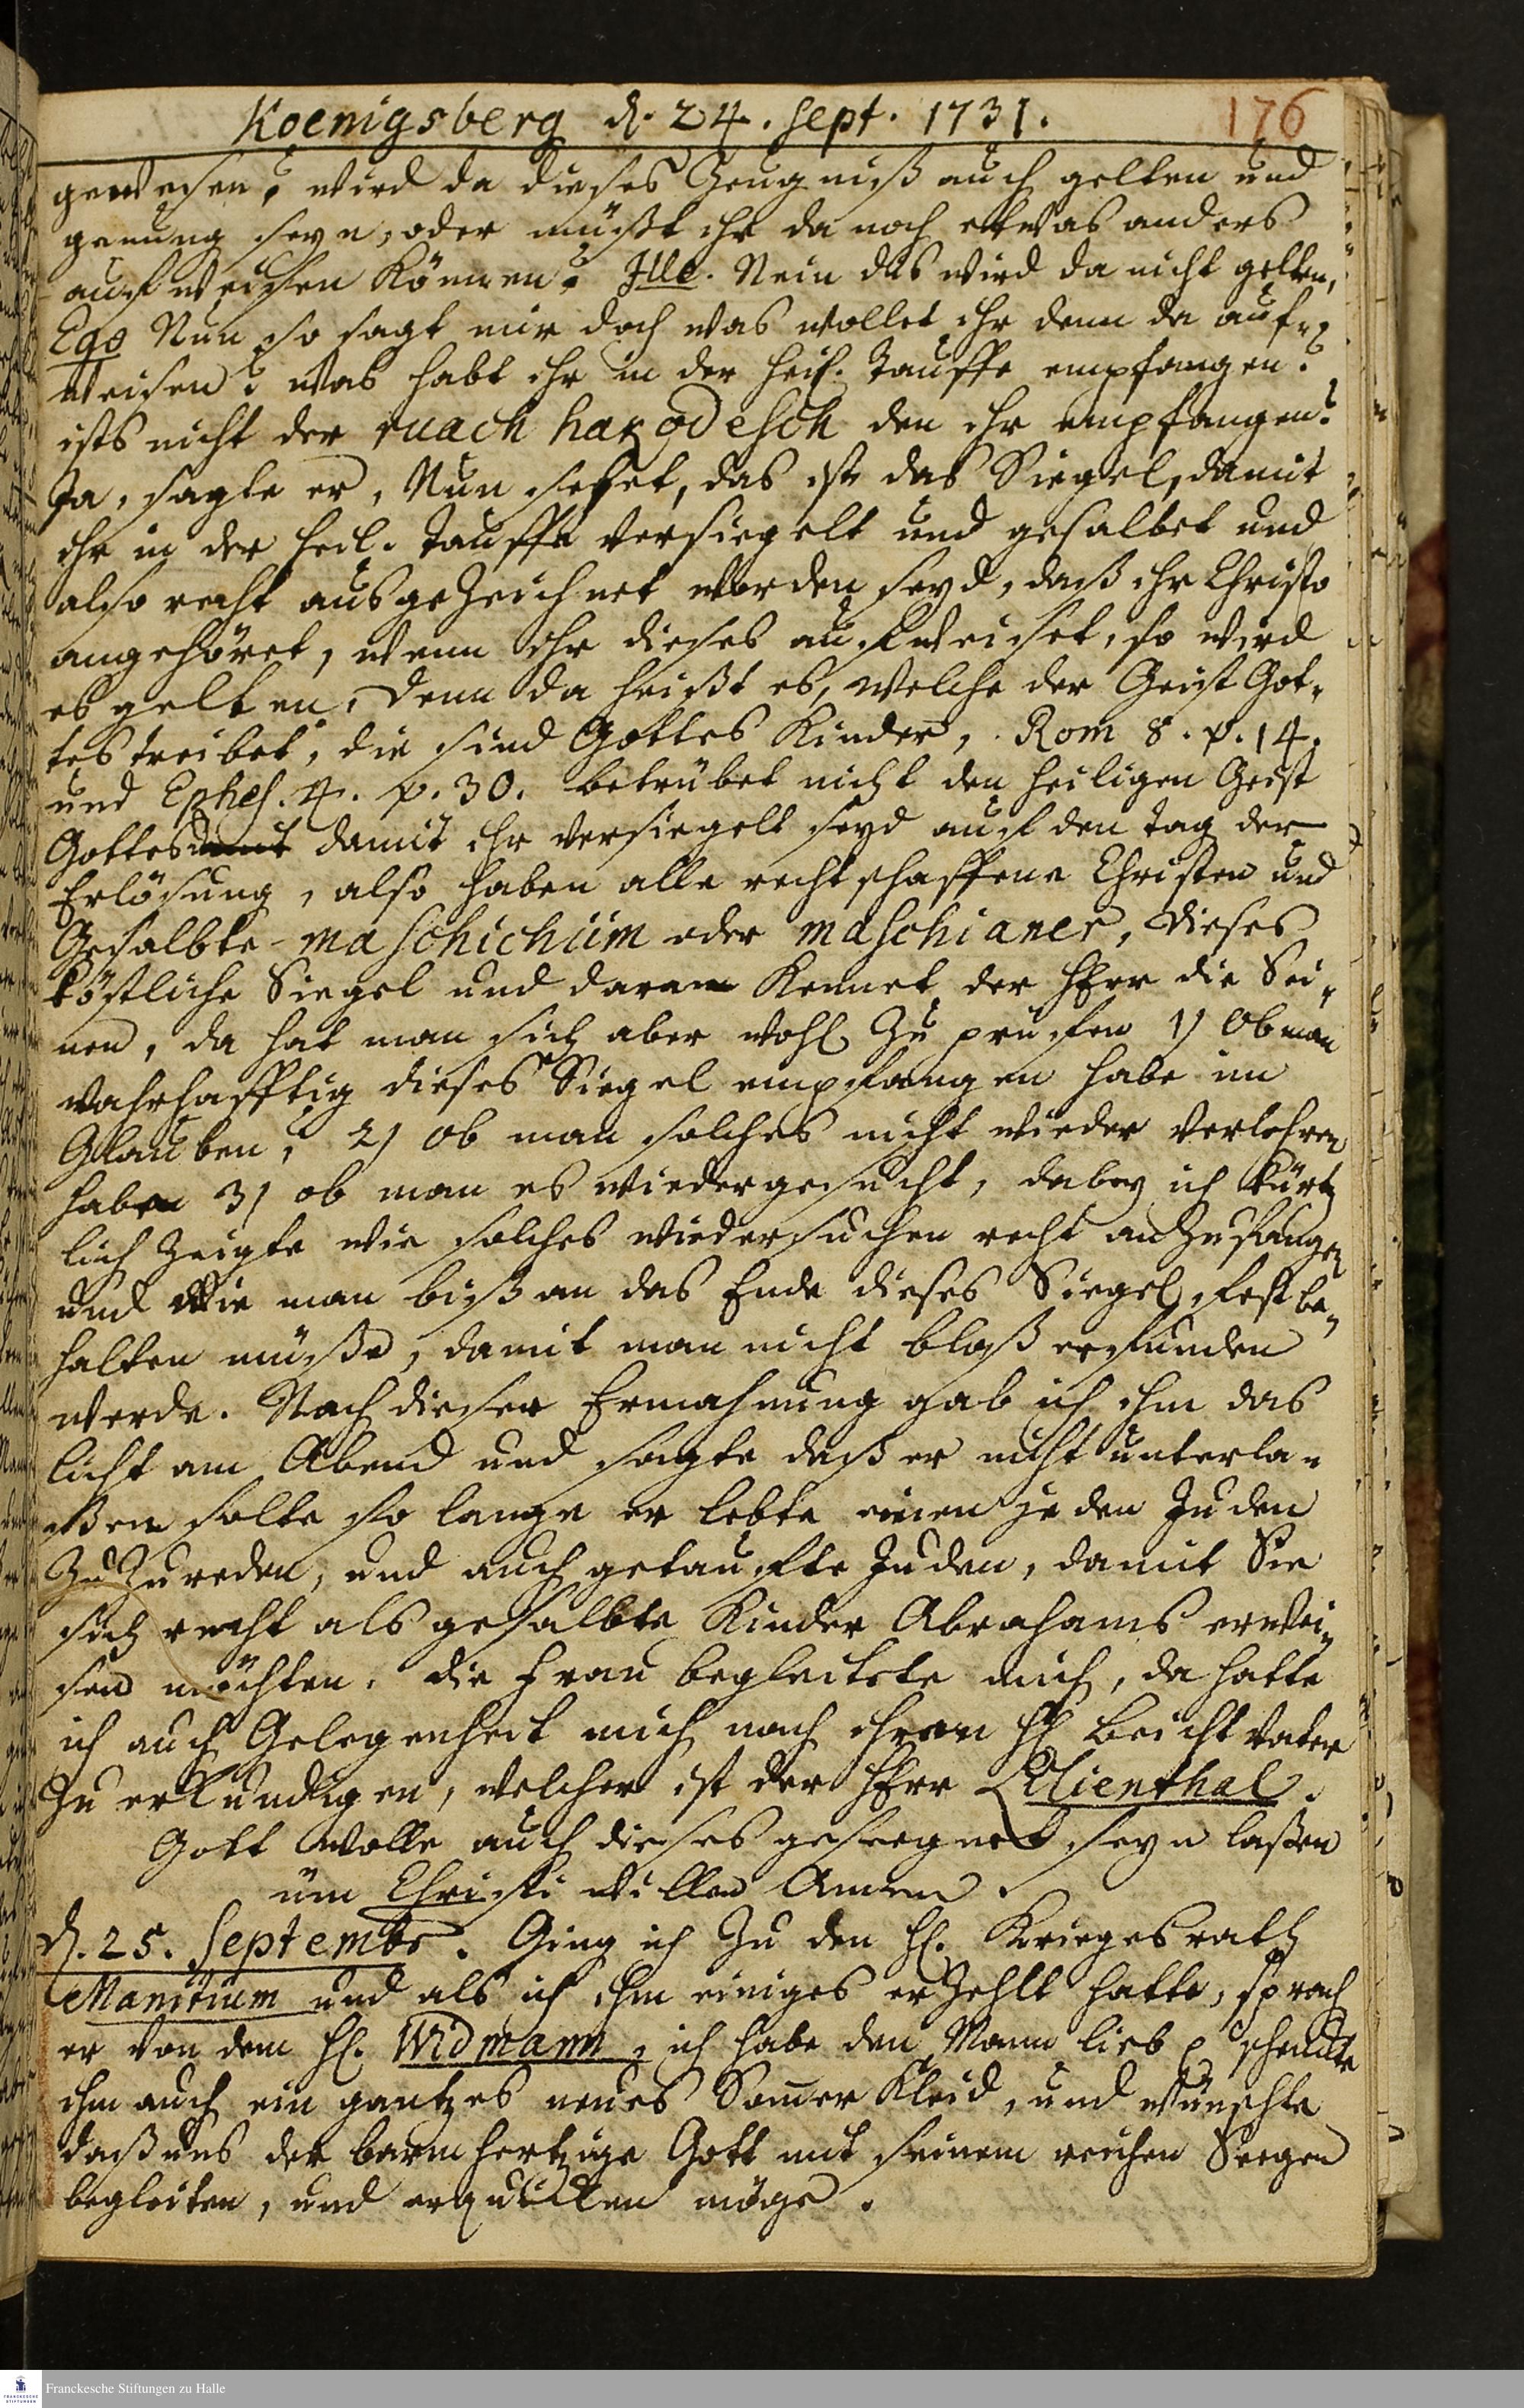 Koenigsberg d. 24. Sept. 1731.
176
gewesen? wird da dieses Zeugniß auch gelten und
genung seyn, oder müßt ihr da noch etwas anders
aufweisen können? Ille. Nein das wird da nicht gelten,
Ego Nun so sagt mir doch was wollet ihr denn da auf-
weisen? was habt ihr in der heil. Tauffe empfangen?
ists nicht der ruach hakodesch den ihr empfangen?
Ja, sagte er, Nun sehet, das ist das Siegel, damit
ihr in der heil. Tauffe versiegelt und gesalbet und
also recht ausgezeichnet worden seyd, daß ihr Christo
angehöret, wenn ihr dieses aufweiset, so wird
es gelten, denn da heißt es, welche der Geist Got-
tes treibet, die sind Gottes Kinder, Rom 8. v. 14.
und Ephes. 4. v. 30. betrübet nicht den heiligen Geist
Gottes damit ihr versiegelt seyd auf den Tag der
Erlösung, also haben alle rechtschaffene Christen und
Gesalbte maschichiim oder maschianer, dieses
köstliche Siegel und daran kennet der HErr die Sei-
nen, da hat man sich aber wohl zu prüfen 1) Ob man
wahrhafftig dieses Siegel empfangen habe im
Glauben, 2) ob man solches nicht wieder verlohren
habe 3) ob man es wiedergesucht, dabey ich kürtz
lich zeigte wie solches wiedersuchen recht anzufangen
und wie man biß an das Ende dieses Siegel fest be-
halten müße, damit man nicht bloß erfunden
werde. Nach dieser Ermahnung gab ich ihm das
licht am Abend und sagte daß er nicht unterla-
ßen solte so lange er lebte einen jeden Juden
zuzureden, und auch getaufte Juden, damit Sie
sich recht als gesalbte Kinder Abrahams erwei-
sen möchten. die Frau begleitete mich, da hatte
ich auch Gelegenheit mich nach ihren H. Beichtvater
zu erkundigen, welcher ist der HErr Lilienthal.
Gott wolle auch dieses geseegnet seyn laßen
üm Christi willen Amen.
d. 25. Septembr. Ging ich zu den H. Kriegesrath
Manitium und als ich ihm einiges erzehlt hatte, sprach
er von dem H. Widmann, ich habe den Mann lieb schenckte
ihm auch ein gantzes neues Somer Kleid, und wünschte
daß uns der barmhertzige Gott mit seinem reichen Seegen
begleiten, und erquicken möge.
Franckesche Stiftungen zu Halle